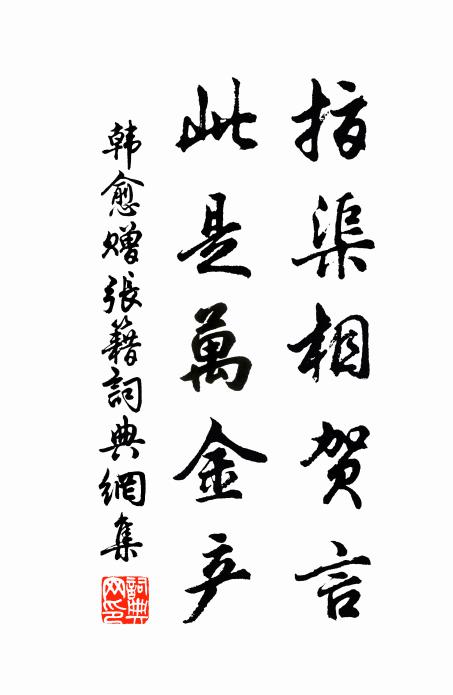 指渠相贺言
此是萬金产
韩愈赠張籍詞典網集
詞典網印